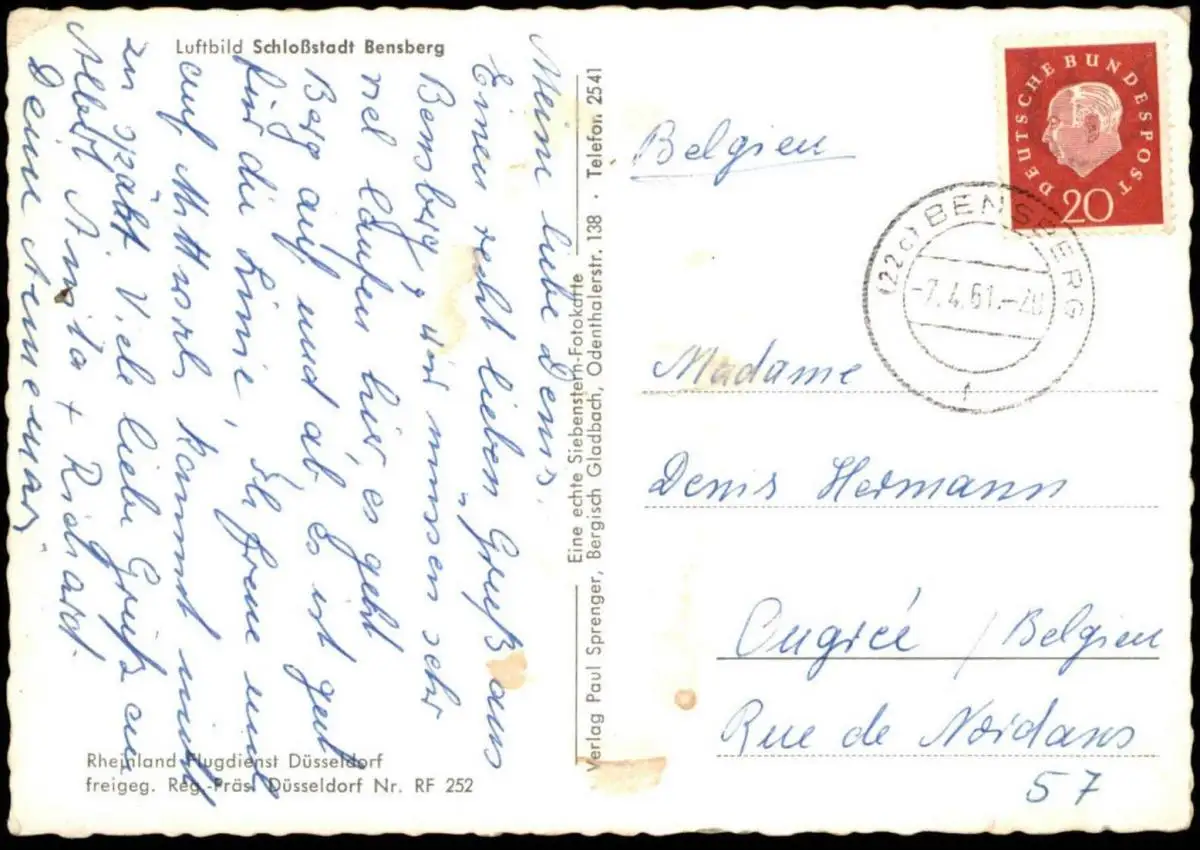 Luftbild Schloßstadt Bensberg
Meine liebe Denis.
Einen recht lieben Gruß aus
Bensberg, wir müssen sehr
viel laufen hier, es geht
Berg auf und ab, es ist gut
für die Linie, Ich freue mich
auf Mittwoch kommt nicht
zu spät. Viele liebe Grüße an
Albert Anita + Richard.
Deine Annemar
Rheinland Flugdienst Düsseldorf
freigeg. Reg.-Präs. Düsseldorf Nr. RF 252
Eine echte Siebenstern-Fotokarte
Verlag Paul Sprenger, Bergisch Gladbach, Odenthalerstr. 138 · Telefon 2541
DEUTSCHE BUNDESPOST
20
(22c) BENSBERG
-7.4.61.-20
f
Belgien
Madame
Denis Hermann
Ougrée / Belgien
Rue de Nordans
57